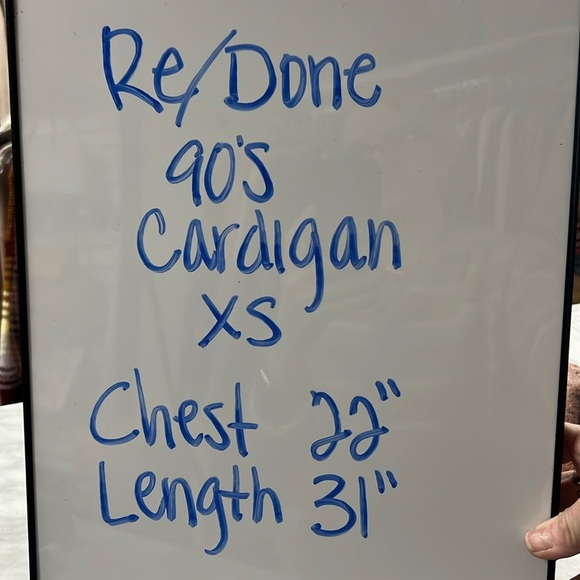 Re/Done
90's
Cardigan
XS
Chest 22"
Length 31"